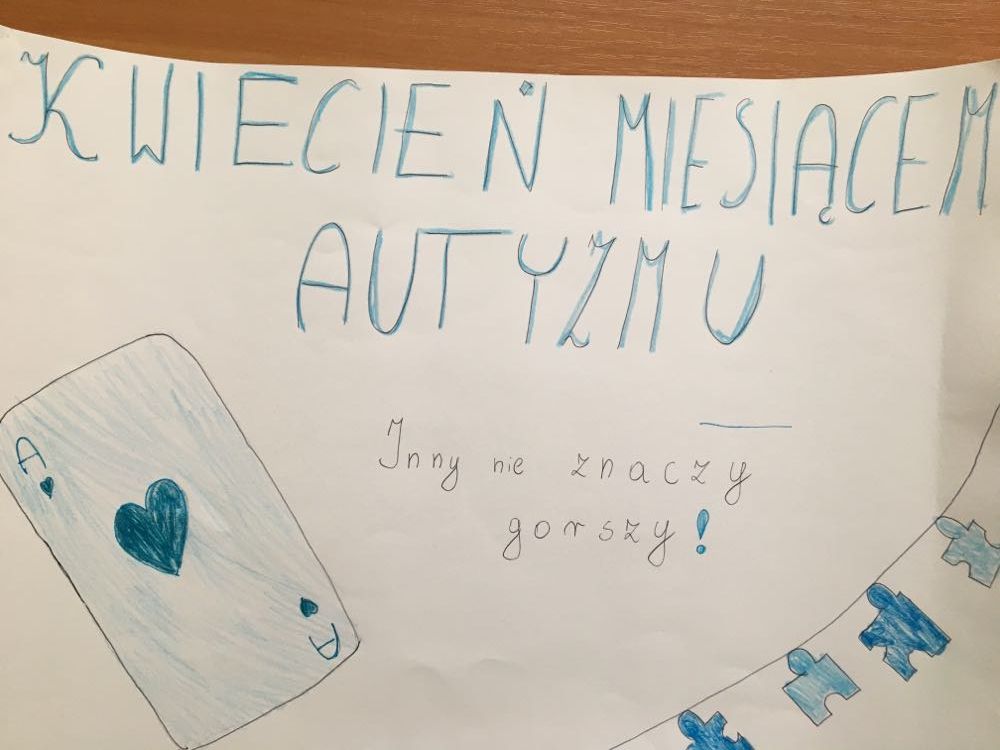 KWIECIEŃ MIESIĄCEM
AUTYZMU
Inny nie znaczy
gorszy!
A
A